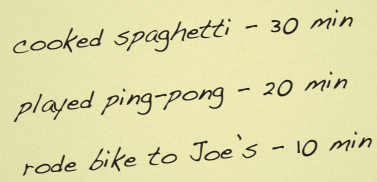 cooked spaghetti - 30 min
played ping-pong - 20 min
rode bike to Joe's - 10 min